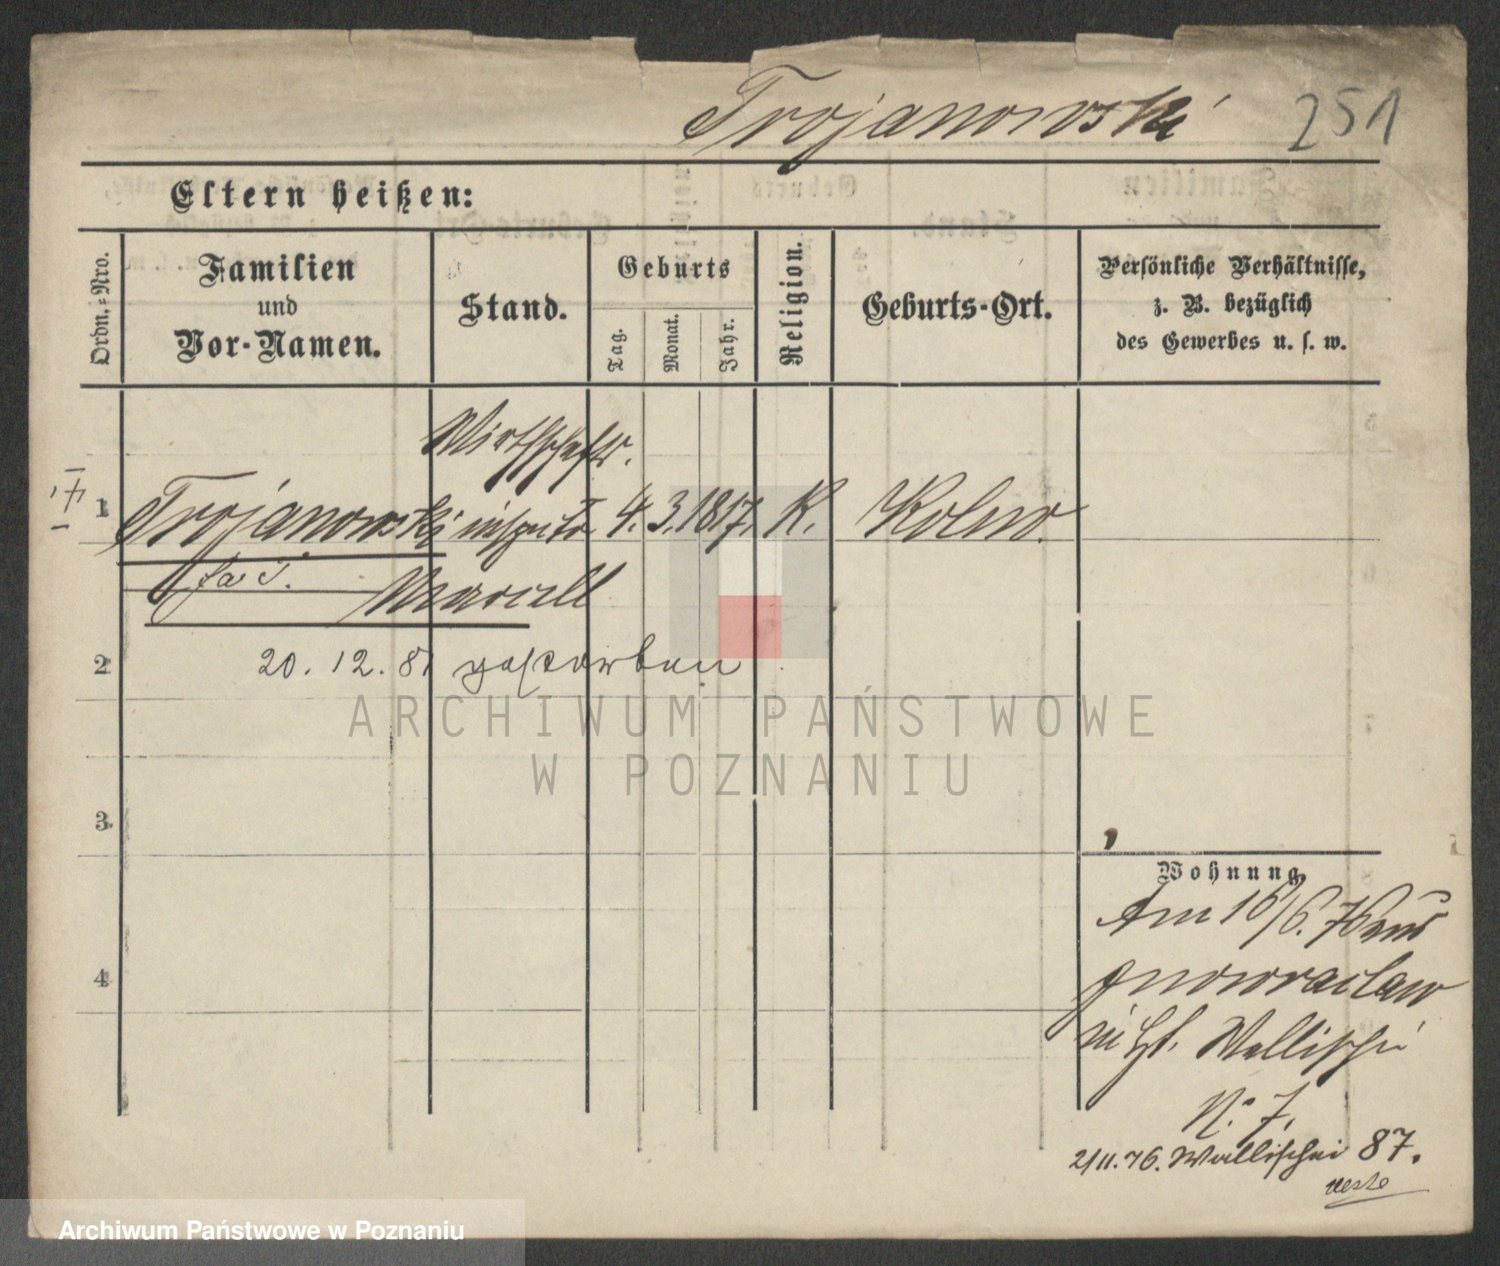 Trojanowski 251
Eltern heißen:
Ordn.-Nro.
Familien
und
Vor-Namen.
Stand.
Geburts
Tag.
Monat.
Jahr.
Religion.
Geburts-Ort.
Persönliche Verhältnisse,
z. B. bezüglich
des Gewerbes u. s. w.
Wirthschafts.
1 Trojanowski inspector 4. 3. 1817. K.
Marcell
2 20. 12. 81 gestorben
ARCHIWUM PAŃSTWOWE
W POZNANIU
3
Wohnung
Am 16/6. 76 aus
Inowraclaw
4
Wallischei
N: 7.
2/11. 76. Wallischei 87.
Archiwum Państwowe w Poznaniu